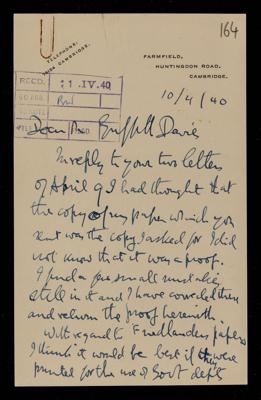 164
TELEPHONE,
CAMBRIDGE.
FARMFIELD,
HUNTINGDON ROAD,
CAMBRIDGE.
RECD. 11.IV.40
10/4/40
Dear Griffith Davies
In reply to your two letters
of April 9 I had thought that
the copy of my paper which you
sent was the copy I asked for I did
not know that it was a proof.
I find a few small mistakes
still in it and I have corrected them
and return the proof herewith.
With regard to Friedlanders papers
I think it would be best if they were
printed for the use of Govt depts